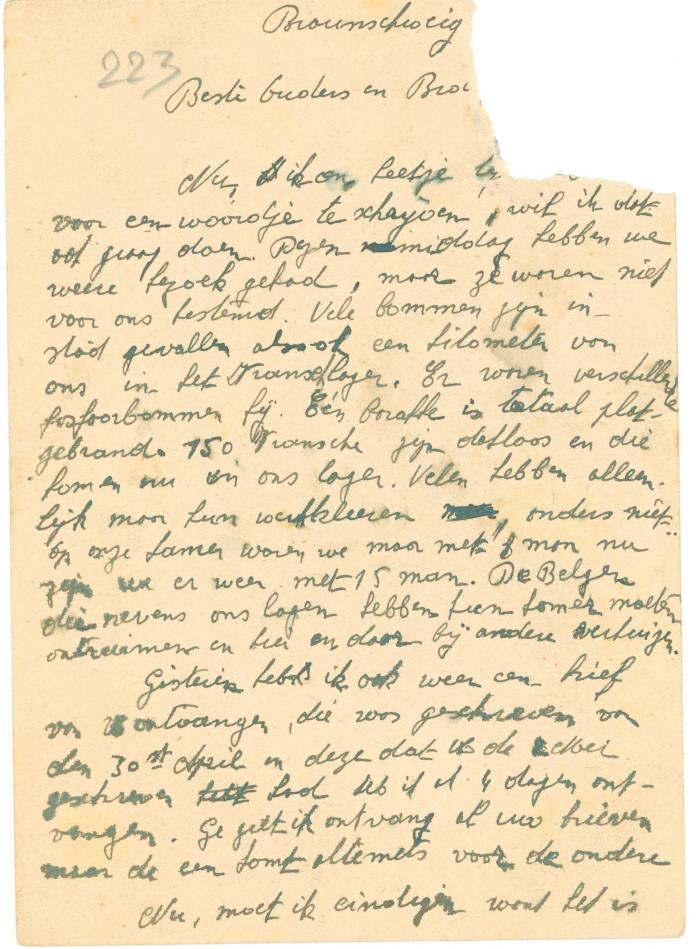 Braunschweig
223
Beste Ouders en Broe
Nu, ik een beetje
voor een woordje te schrijven, wil ik dat
ook graag doen. Dezen namiddag hebben we
weere bezoek gehad, maar ze waren niet
voor ons bestemd. Vele bommen zijn in
stad gevallen alsook een kilometer van
ons in het Franschlager. Er waren verschillende
fosfoorbommen bij. Eén barakke is totaal plat-
gebrand. 150 Fransche zijn dakloos en die
komen nu in ons lager. Velen hebben alleen-
lijk maar hun werkkleeren, anders niet.
op onze kamer waren we maar met 8 man nu
zijn we er weer met 15 man. De Belgen
die nevens ons lagen hebben hun kamer moeten
ontruimen en hier en daar bij andere verhuizen.
Gisteren heb ik ook weer een brief
van U ontvangen, die was geschreven van
den 30st April en deze dat U de Mei
geschreven had heb ik al 4 dagen ont-
vangen. Ge ziet ik ontvang al uw brieven
maar de een komt altemets voor de andere
Nu, moet ik eindigen want het is